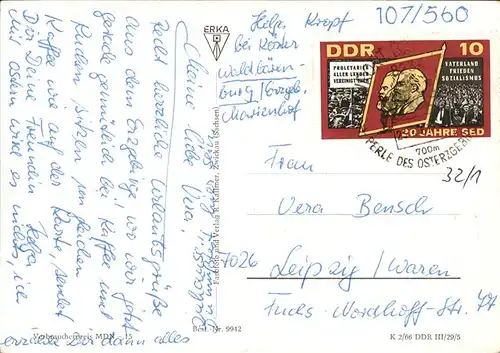 Meine liebe Vera,
Recht herzliche Urlaubsgrüße
aus dem Erzgebirge, wo wir jetzt
gerade gemütlich bei Kaffee und
Kuchen sitzen am
Kaffee wie auf der Karte, sendet
Dir Deine Freundin Helga
Mit Ostern wird es nichts, ich
erzähle Dir dann alles
ERKA
Verbraucherpreis MDN -,15
Best.-Nr. 9942
Helga Kropf
bei Köster
burg/Erzgeb.
Marienhof
107/560
DDR 10
PROLETARIER
ALLER LÄNDER
VEREINIGT EUCH
VATERLAND
FRIEDEN
SOZIALISMUS
20 JAHRE SED
700m
PERLE DES OSTERZGEB
32/1
Frau
Vera Bensch
7026
Leipzig/Waren
Fuchs-Nordhoff-Str. 47
K 2/66 DDR III/29/5